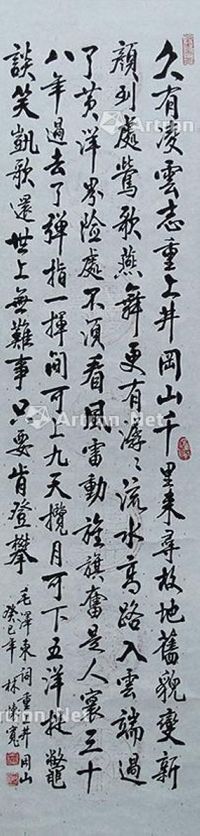 久有凌雲志重上井岡山千里来尋故地舊貌變新
顔到處鶯歌燕舞更有潺々流水高路入雲端過
了黄洋界险處不須看風雷動旌旗奮是人寰三十
八年過去了弹指一揮間可上九天攬月可下五洋捉鱉
談笑凱歌還世上無難事只要肯登攀
毛澤東词重井岡山
癸巳年 林
Artron.Net